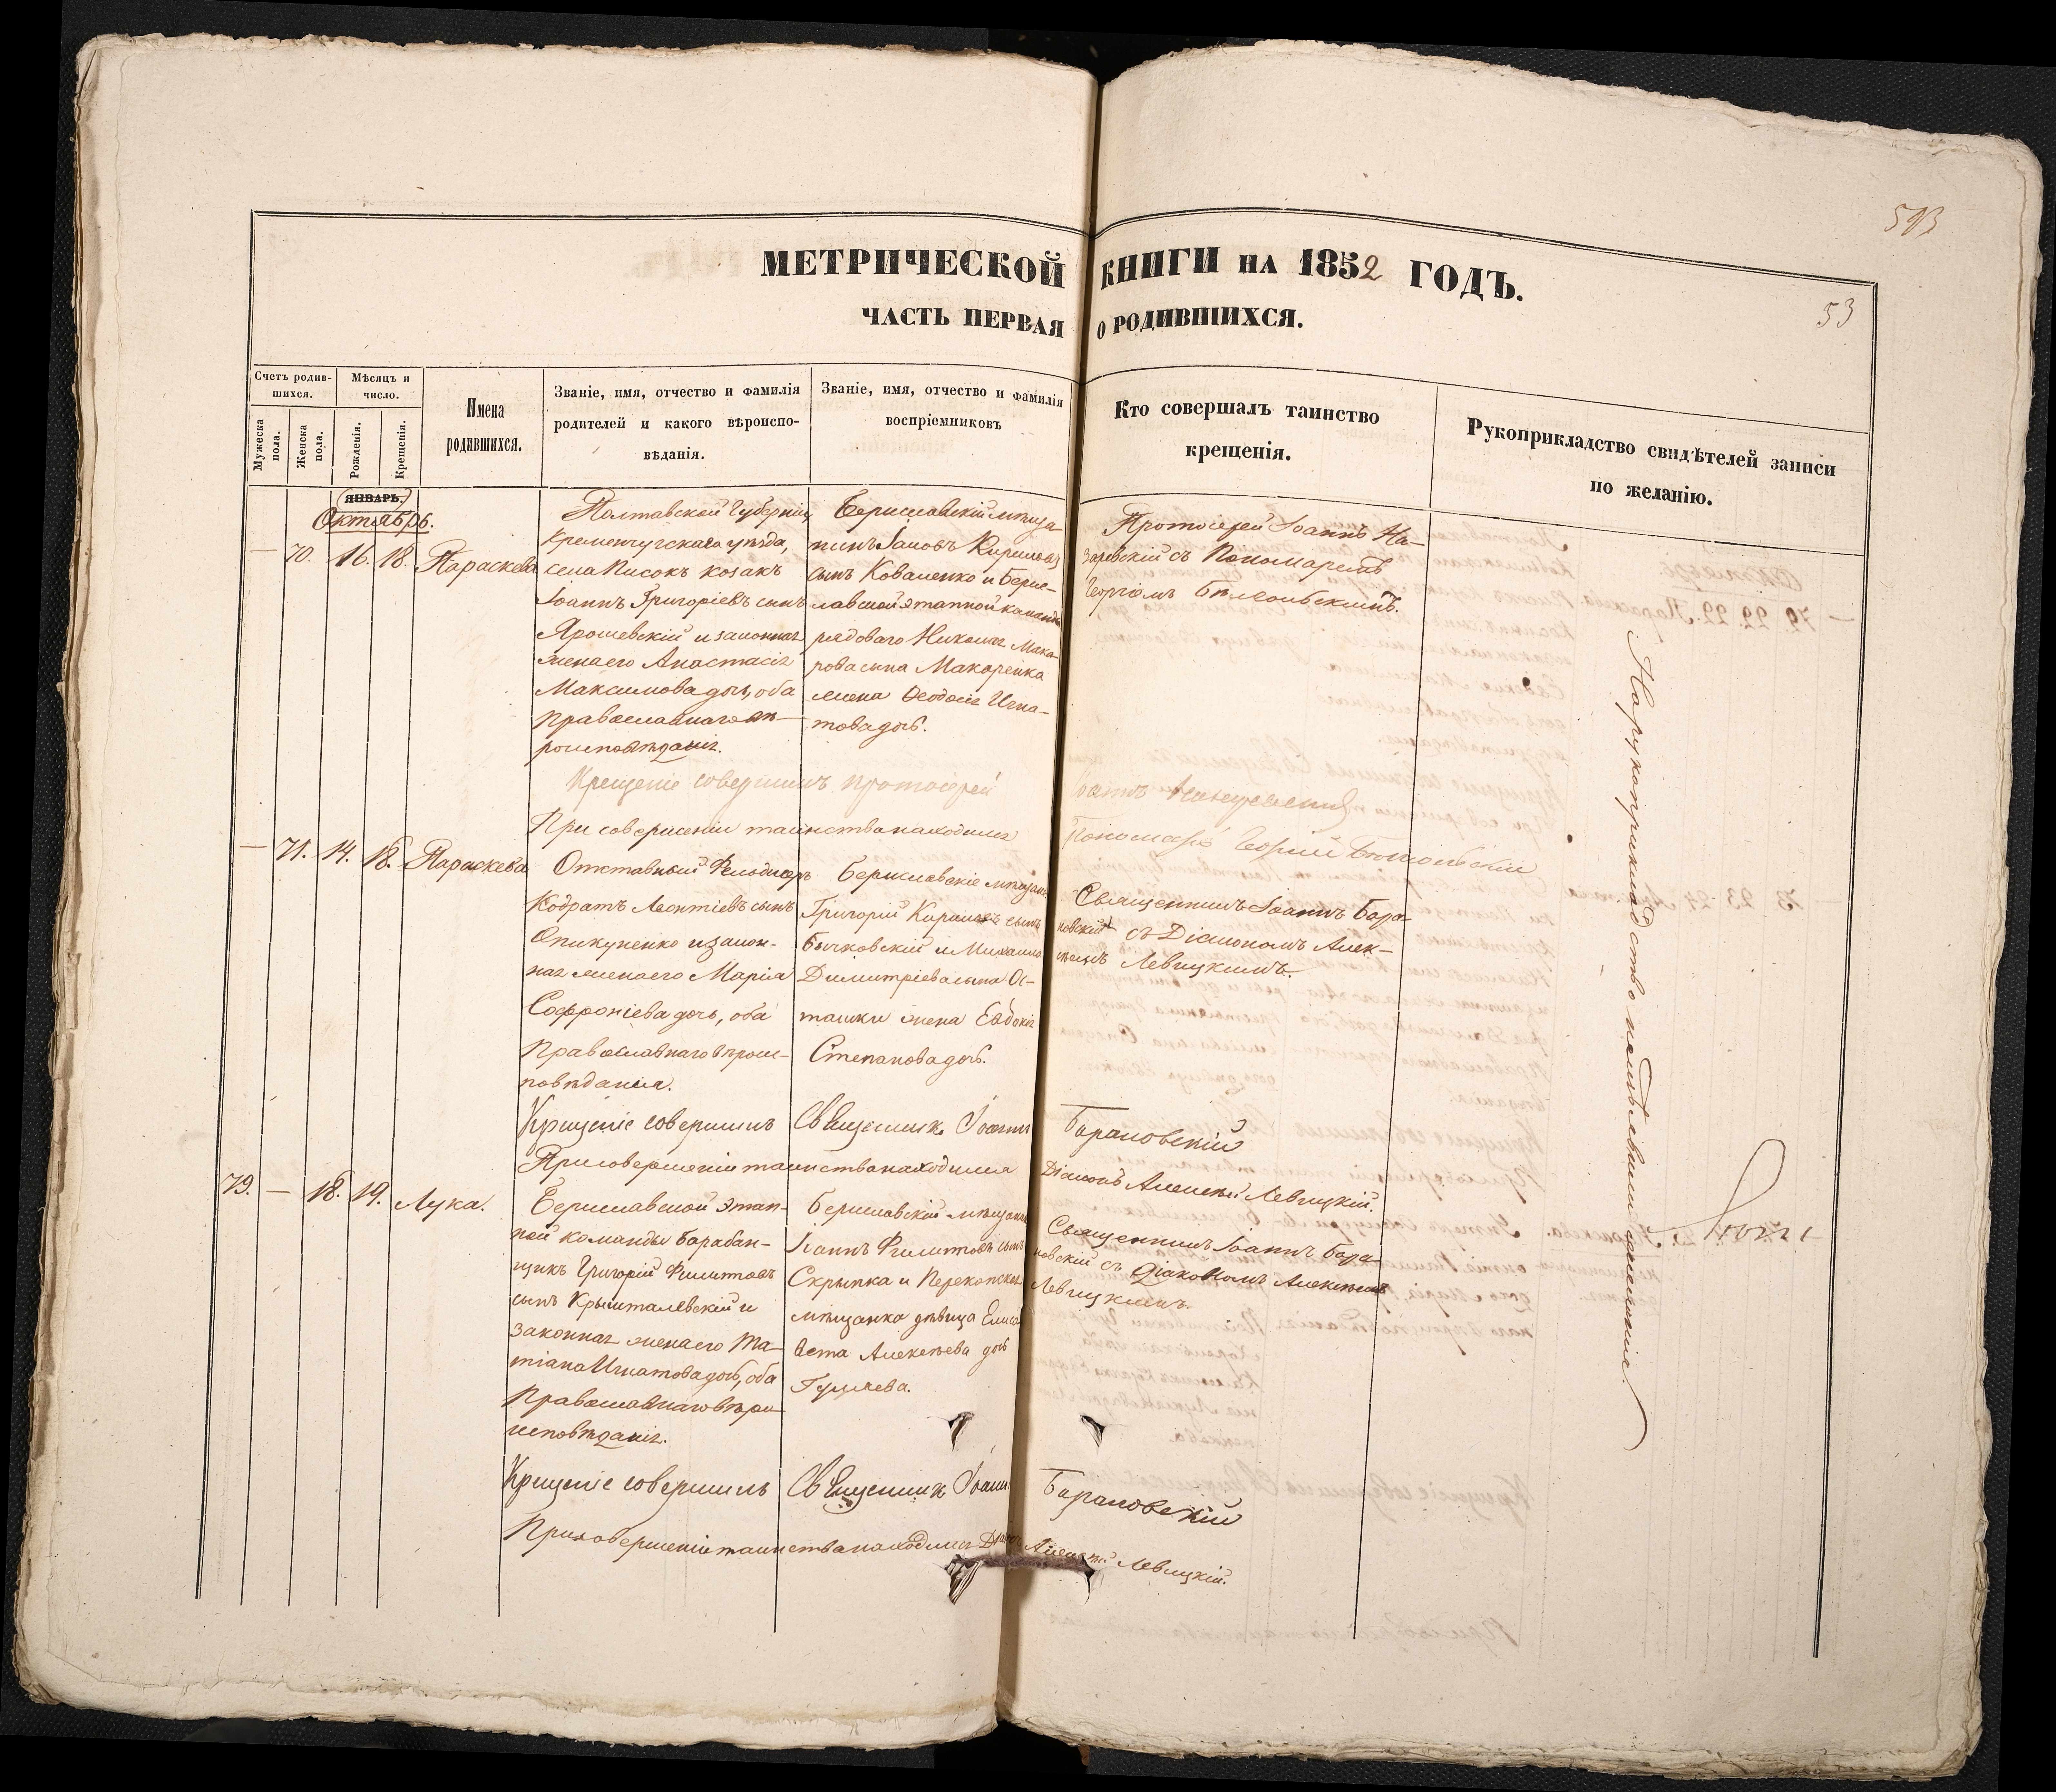 593
МЕТРИЧЕСКОЙ КНИГИ НА 1852 ГОДЪ.
53
ЧАСТЬ ПЕРВАЯ О РОДИВШИХСЯ.
Счетъ родив-
шихся.
Мѣсяцъ и
число.
Мужеска
пола.
Женска
пола.
Рожденія.
Крещенія.
Имена
родившихся.
Званіе, имя, отчество и фамилія
родителей и какого вѣроиспо-
вѣданія.
Званіе, имя, отчество и фамилія
воспріемниковъ
Кто совершалъ таинство
крещенія.
Рукоприкладство свидѣтелей записи
по желанію.
ЯНВАРЬ.
Октябрь.
— 70. 16. 18. Параскева
Полтавской Губерніи,
Кременчугскаго уѣзда,
села Писокъ козакъ
Іоаннъ Григоріевъ сынъ
Ярошевскій и законная
жена его Анастасія
Максимова дочь, оба
православнаго вѣ-
роисповѣданія.
Бериславскій мѣща-
нинъ Іаковъ Кирилловъ
сынъ Коваленко и Бери-
славской этапной команды
рядоваго Николая Мака-
рова сына Макаренка
жена Ѳеодосія Игна-
това дочь.
Протоіерей Іоаннъ На-
заревскій съ Пономаремъ
Георгіемъ
Крещеніе совершилъ протоіерей Іоаннъ
При совершеніи таинства находился Пономарь Георгій
— 71. 14. 18. Параскева
Отставный
Кодратъ Леонтіевъ сынъ
Опикуненко и закон-
ная жена его Марія
Софроніева дочь, оба
Православнаго вѣроис-
повѣданія.
Бериславскіе мѣщане
Григорій Кириловъ сынъ
Бычковскій и Михаила
Димитріева сына Ос-
ташки жена Евдокія
Степанова дочь.
Священникъ Іоаннъ Бара-
новскій съ Діакономъ Алек-
сѣемъ Левицкимъ.
Крещеніе совершилъ Священникъ Іоаннъ Барановскій
При совершеніи таинства находился Діаконъ Алексѣй Левицкій.
79. — 18. 19. Лука.
Бериславской этап-
ной команды барабан-
щикъ Григорій Филиповъ
сынъ Крышталевскій и
законная жена его Та-
тіана Игнатова дочь, оба
Православнаго вѣро-
исповѣданія.
Бериславскій мѣщанинъ
Іоаннъ Филиповъ сынъ
Скрыпка и Перекопская
мѣщанка дѣвица Елиса-
вета Алексѣева дочь
Гуляева.
Священникъ Іоаннъ Бара-
новскій съ Діакономъ Алексѣемъ
Левицкимъ.
Крещеніе совершилъ Священникъ Іоаннъ Барановскій
При совершеніи таинства находился Діаконъ Алексѣй Левицкій.
На рукоприкладство неимѣлѣ желаніе.